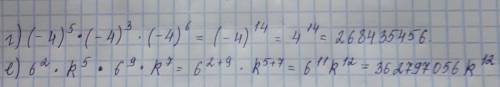 г) (-4)⁵·(-4)³·(-4)⁶ = (-4)¹⁴ = 4¹⁴ = 268435456.
е) 6²·k⁵·6⁹·k⁷ = 6²⁺⁹·k⁵⁺⁷ = 6¹¹k¹² = 362797056 k¹²